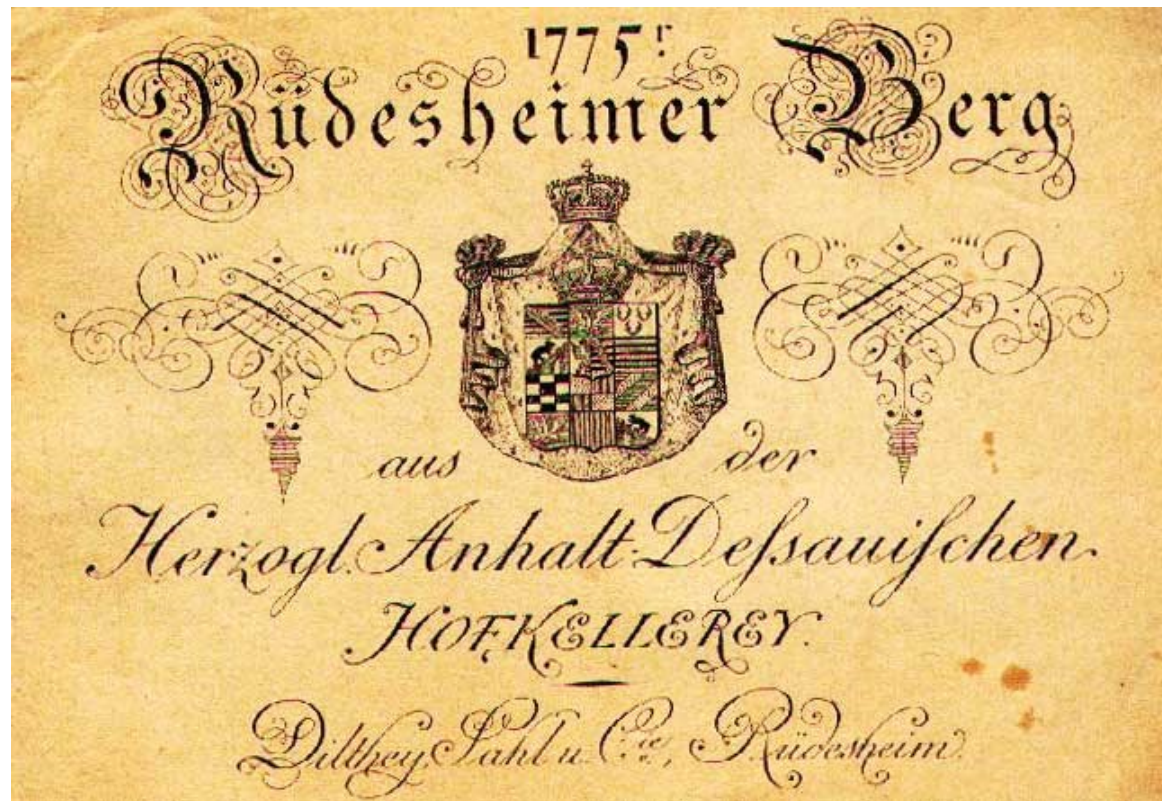 1775ʳ
Rüdesheimer Berg
aus der
Herzogl. Anhalt-Deſsauiſchen
HOFKELLEREY.
Dilthey, Sahl u. Cie, Rüdesheim.